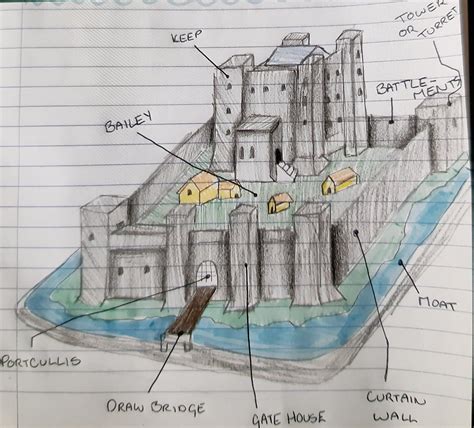 TOWER
OR
TURRET
KEEP
BATTLE-
MENTS
BAILEY
MOAT
PORTCULLIS
DRAW BRIDGE
GATE HOUSE
CURTAIN
WALL